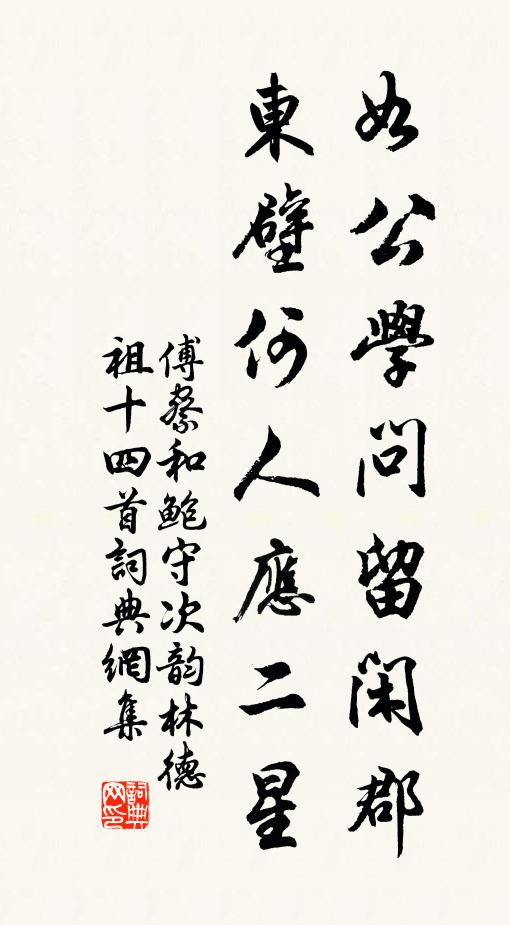 如公學問留閑郡
東壁何人應二星
傅察和鮑守次韵林德
祖十四首詞典網集
詞典网印